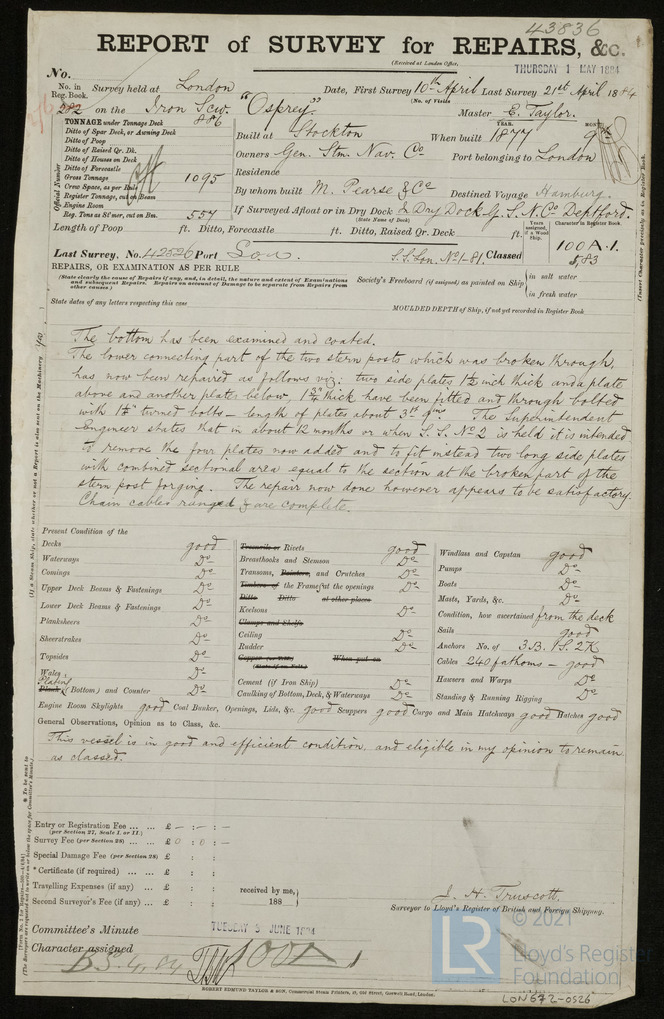 43836
REPORT of SURVEY for REPAIRS, &c.
(Received at London Office,
THURSDAY 1 MAY 1884
No.
No. in Reg. Book.
Survey held at London Date, First Survey 10th April Last Survey 21st April 1884
(No. of Visits
282 on the Iron Scw. "Osprey" Master E. Taylor.
TONNAGE under Tonnage Deck 886
Ditto of Spar Deck, or Awning Deck
Ditto of Poop
Ditto of Raised Qr. Dk.
Ditto of Houses on Deck
Ditto of Forecastle
Gross Tonnage 1095
Crew Space, as per Rule
Register Tonnage, cut on Beam
Engine Room
Reg. Tons as St'mer, cut on Bm. 557
Official Number
YEAR. MONTH
Built at Stockton When built 1877 9
Owners Gen. Stm. Nav. Co Port belonging to London
Residence
By whom built M. Pearse & Co Destined Voyage Hamburg.
If Surveyed Afloat or in Dry Dock Dry Dock G. S. N. Co Deptford.
(State Name of Dock)
Length of Poop ft. Ditto, Forecastle ft. Ditto, Raised Qr. Deck ft.
Years assigned, if a Wood Ship.
Character in Register Book.
100 A.1.
5,83
Last Survey. No. 42526 Port Lon. S.S. Lon. No 1-81. Classed
REPAIRS, OR EXAMINATION AS PER RULE
(State clearly the cause of Repairs if any, and, in detail, the nature and extent of Examinations and subsequent Repairs. Repairs on account of Damage to be separate from Repairs from other causes.)
Society's Freeboard (if assigned) as painted on Ship
in salt water
in fresh water
State dates of any letters respecting this case
MOULDED DEPTH of Ship, if not yet recorded in Register Book
(Insert Character precisely as in Register Book.
The bottom has been examined and coated.
The lower connecting part of the two stern posts which was broken through,
has now been repaired as follows viz: two side plates 1½ inch thick and a plate
above and another plate below, 1¾" thick have been fitted and through bolted
with turned bolts – length of plates about 3ft The Superintendent
Engineer states that in about 12 months or when S.S. No 2 is held it is intended
to remove the four plates now added and to fit instead two long side plates
with combined sectional area equal to the section at the broken part of the
stern post forging. The repair now done however appears to be satisfactory.
Chain cables ranged & are complete.
Present Condition of the
Decks good
Waterways Do
Comings Do
Upper Deck Beams & Fastenings Do
Lower Deck Beams & Fastenings Do
Planksheers Do
Sheerstrakes Do
Topsides Do
Wales Do
Plating
Plank (Bottom) and Counter Do
Treenails or Rivets good
Breasthooks and Stemson Do
Transoms, Pointers, and Crutches Do
Timbers of the Frame at the openings Do
Ditto Ditto at other places
Keelsons Do
Clamps and Shelfs
Ceiling Do
Rudder Do
Copper When put on
Cement (if Iron Ship) Do
Caulking of Bottom, Deck, & Waterways Do
Windlass and Capstan good
Pumps Do
Boats Do
Masts, Yards, &c. Do
Condition, how ascertained from the deck
Sails good
Anchors No. of 3 B. 1 S. 2 K
Cables 240 fathoms – good
Hawsers and Warps Do
Standing & Running Rigging Do
Engine Room Skylights good Coal Bunker, Openings, Lids, &c. good Scuppers good Cargo and Main Hatchways good Hatches good
General Observations, Opinion as to Class, &c.
This vessel is in good and efficient condition, and eligible in my opinion to remain
as classed.
Entry or Registration Fee ... ... £ – : – : –
(per Section 27, Scale I. or II.)
Survey Fee (per Section 28) ... £ 0 : 0 : –
Special Damage Fee (per Section 28) £ : :
* Certificate (if required) ... ... £ : :
Travelling Expenses (if any) ... £ : :
Second Surveyor's Fee (if any) ... £ : :
received by me,
188
J. H. Truscott.
Surveyor to Lloyd's Register of British and Foreign Shipping.
Committee's Minute TUESDAY 3 JUNE 1884
Character assigned 100A1
B.S. 4,84
ROBERT EDMUND TAYLOR & SON, Commercial Steam Printers, 19, Old Street, Goswell Road, London.
© 2021
LR
Lloyd's Register
Foundation
LON672-0526